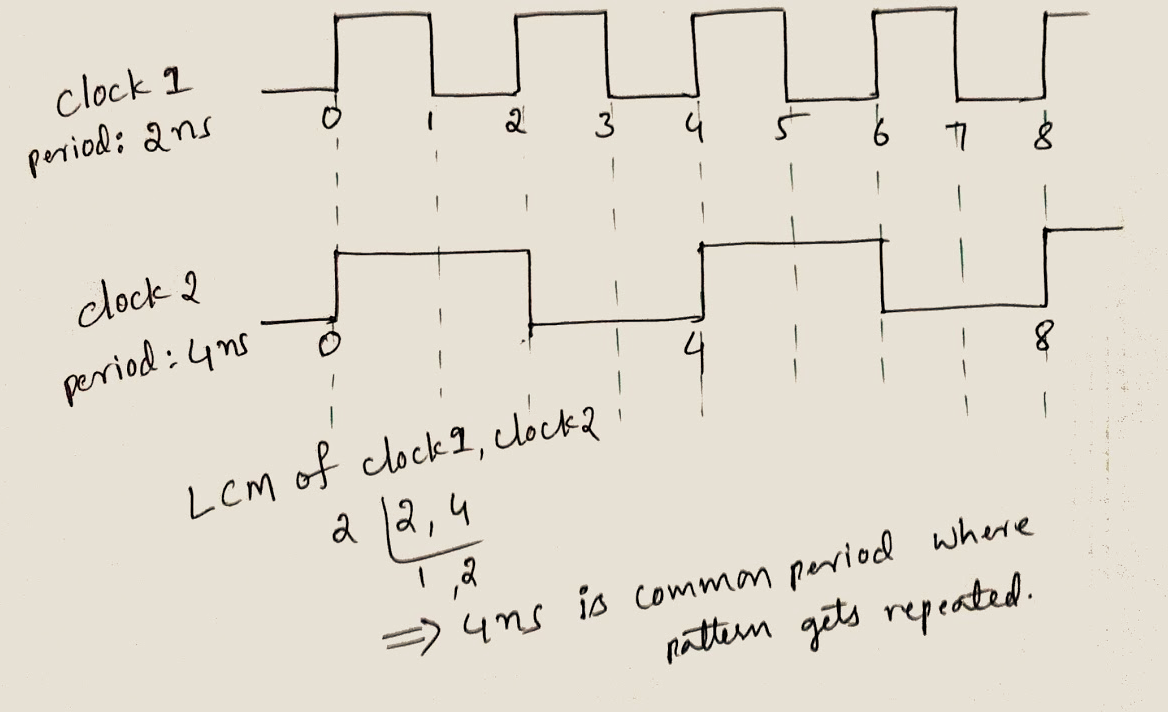 clock 1
period: 2ns
0 1 2 3 4 5 6 7 8
clock 2
period: 4ns
0 4 8
LCM of clock1, clock2
2 2, 4
1, 2
⇒ 4ns is common period where
pattern gets repeated.